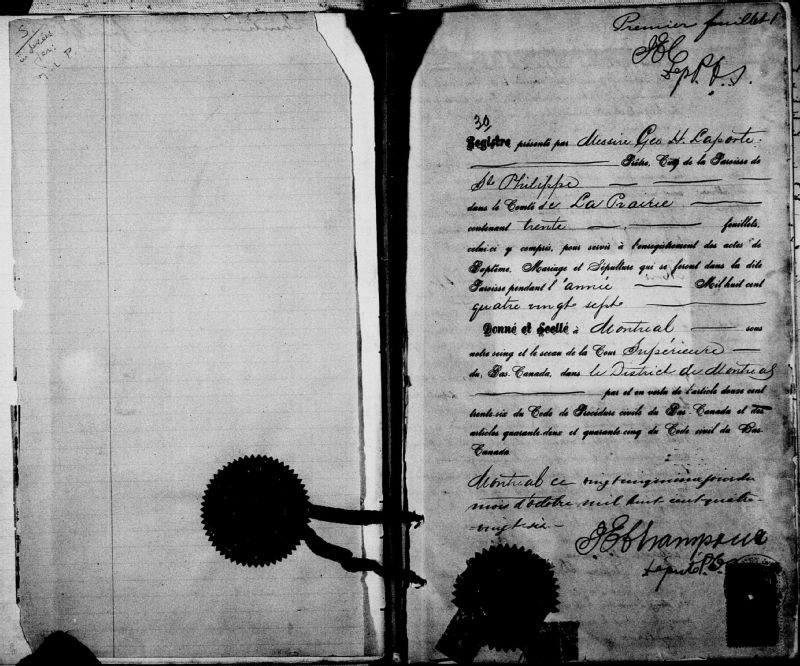 Premier feuillet 1
30
Registre présenté par Messire Geo H. Laporte
Prêtre, Curé de la Paroisse de
St Philippe
dans le Comté de La Prairie
contenant trente feuillets,
celui-ci y compris, pour servir à l'enregistrement des actes de
Baptême, Mariage et Sépulture qui se feront dans la dite
Paroisse pendant l'année Mil huit cent
quatre vingt sept
Donné et Scellé à Montréal sous
notre seing et le sceau de la Cour Supérieure
du Bas-Canada, dans le District de Montréal
par et en vertu de l'article douze cent
trente-six du Code de Procédure civile du Bas-Canada et des
articles quarante-deux et quarante-cinq du Code civil du Bas-
Canada
Montréal ce jour du
mois d'octobre mil huit cent quatre-
vingt-six